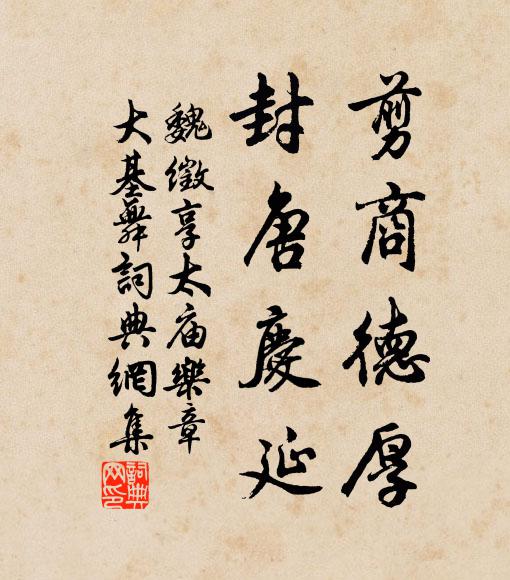 剪商德厚
封唐慶延
魏徵享太庙樂章
大基舞詞典網集
詞典
网印